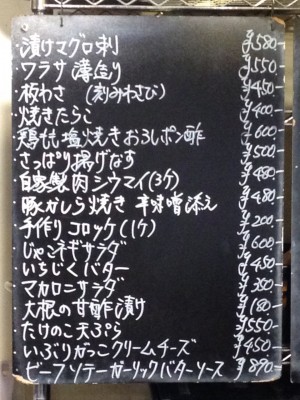 漬けマグロ刺 ¥580-
ワラサ薄造り ¥550-
板わさ (刻みわさび) ¥450-
焼きたらこ ¥400-
鶏もも塩焼きおろしポン酢 ¥600-
さっぱり揚げなす ¥500-
自家製肉シウマイ(3ケ) ¥480-
豚かしら焼き 辛味噌添え ¥480-
手作りコロッケ(1ケ) ¥200-
じゃこネギサラダ ¥600-
いちじくバター ¥450-
マカロニサラダ ¥250-
大根の甘酢漬け ¥180-
たけのこ天ぷら ¥550-
いぶりがっこクリームチーズ ¥450-
ビーフソテーガーリックバターソース ¥890-